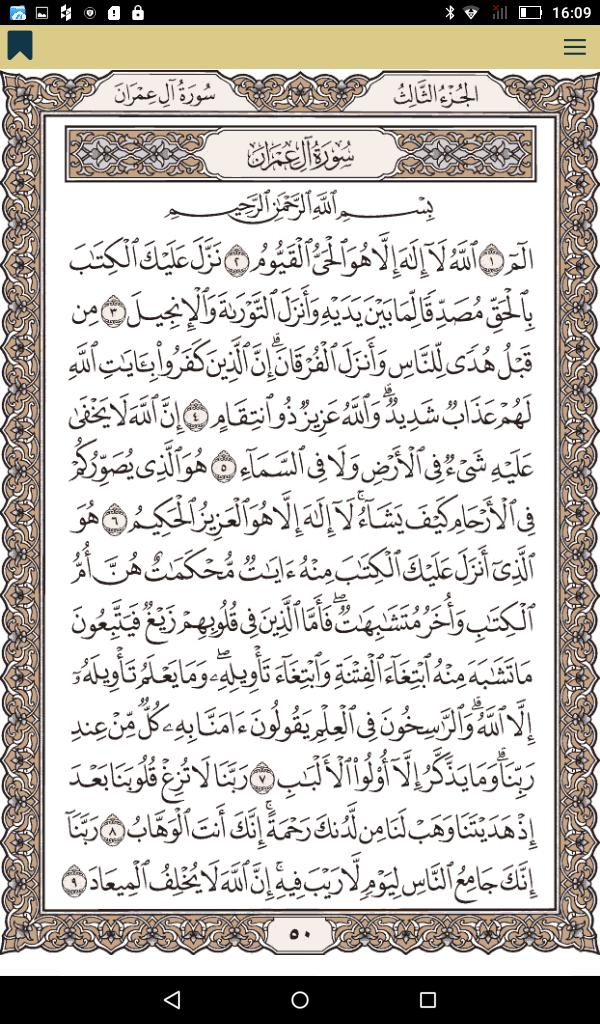 16:09
سُورَةُ آلِ عِمْرَانَ
الجُزْءُ الثَّالِثُ
سُورَةُ آلِ عِمْرَانَ
بِسْمِ اللَّهِ الرَّحْمَٰنِ الرَّحِيمِ
الٓمٓ ١ ٱللَّهُ لَآ إِلَٰهَ إِلَّا هُوَ ٱلْحَىُّ ٱلْقَيُّومُ ٢ نَزَّلَ عَلَيْكَ ٱلْكِتَٰبَ
بِٱلْحَقِّ مُصَدِّقًا لِّمَا بَيْنَ يَدَيْهِ وَأَنزَلَ ٱلتَّوْرَىٰةَ وَٱلْإِنجِيلَ ٣ مِن
قَبْلُ هُدًى لِّلنَّاسِ وَأَنزَلَ ٱلْفُرْقَانَ ۗ إِنَّ ٱلَّذِينَ كَفَرُوا۟ بِـَٔايَٰتِ ٱللَّهِ
لَهُمْ عَذَابٌ شَدِيدٌ ۗ وَٱللَّهُ عَزِيزٌ ذُو ٱنتِقَامٍ ٤ إِنَّ ٱللَّهَ لَا يَخْفَىٰ
عَلَيْهِ شَىْءٌ فِى ٱلْأَرْضِ وَلَا فِى ٱلسَّمَآءِ ٥ هُوَ ٱلَّذِى يُصَوِّرُكُمْ
فِى ٱلْأَرْحَامِ كَيْفَ يَشَآءُ ۚ لَآ إِلَٰهَ إِلَّا هُوَ ٱلْعَزِيزُ ٱلْحَكِيمُ ٦ هُوَ
ٱلَّذِىٓ أَنزَلَ عَلَيْكَ ٱلْكِتَٰبَ مِنْهُ ءَايَٰتٌ مُّحْكَمَٰتٌ هُنَّ أُمُّ
ٱلْكِتَٰبِ وَأُخَرُ مُتَشَٰبِهَٰتٌ ۖ فَأَمَّا ٱلَّذِينَ فِى قُلُوبِهِمْ زَيْغٌ فَيَتَّبِعُونَ
مَا تَشَٰبَهَ مِنْهُ ٱبْتِغَآءَ ٱلْفِتْنَةِ وَٱبْتِغَآءَ تَأْوِيلِهِۦ ۗ وَمَا يَعْلَمُ تَأْوِيلَهُۥٓ
إِلَّا ٱللَّهُ ۗ وَٱلرَّٰسِخُونَ فِى ٱلْعِلْمِ يَقُولُونَ ءَامَنَّا بِهِۦ كُلٌّ مِّنْ عِندِ
رَبِّنَا ۗ وَمَا يَذَّكَّرُ إِلَّآ أُو۟لُوا۟ ٱلْأَلْبَٰبِ ٧ رَبَّنَا لَا تُزِغْ قُلُوبَنَا بَعْدَ
إِذْ هَدَيْتَنَا وَهَبْ لَنَا مِن لَّدُنكَ رَحْمَةً ۚ إِنَّكَ أَنتَ ٱلْوَهَّابُ ٨ رَبَّنَآ
إِنَّكَ جَامِعُ ٱلنَّاسِ لِيَوْمٍ لَّا رَيْبَ فِيهِ ۚ إِنَّ ٱللَّهَ لَا يُخْلِفُ ٱلْمِيعَادَ ٩
٥٠